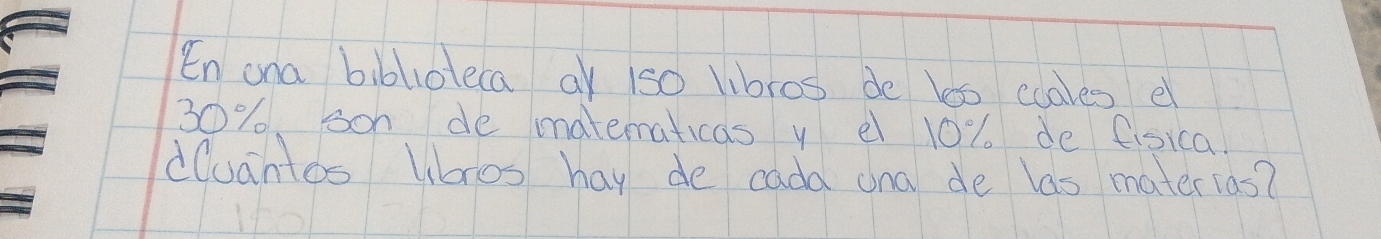 En una biblioteca ay 150 libros de los cuales el
30% son de matematicas y el 10% de fisica.
¿Cuántos libros hay de cada una de las materias?